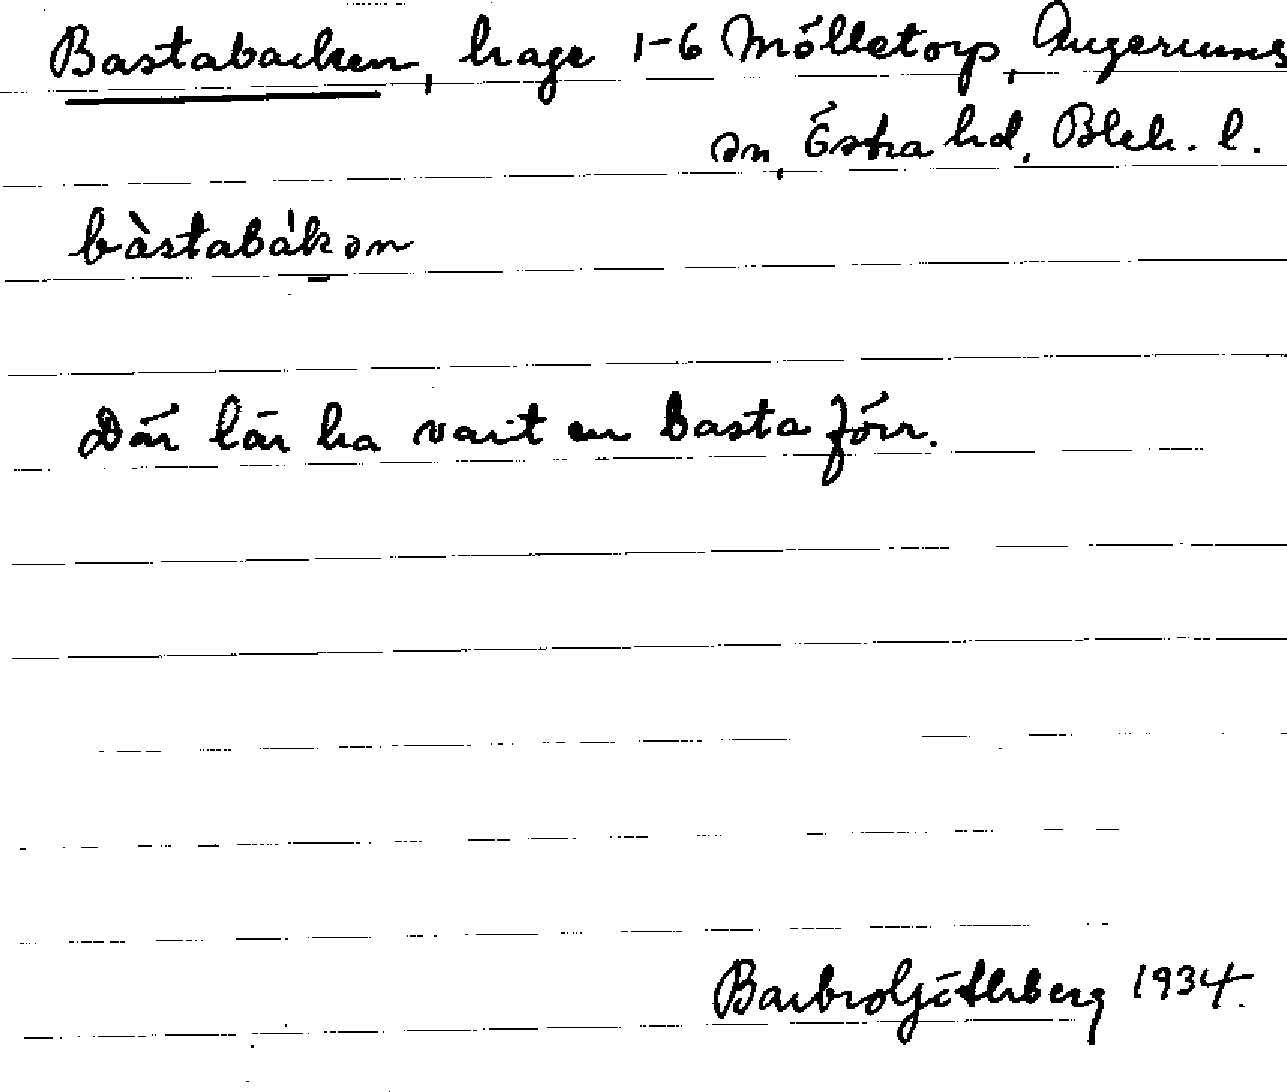 Bastabacken, hage 1-6 Mölletorp, Augerums
sn, Östra hd, Blek. l.
bàstabák ən
Där lär ha varit en basta förr.
Barbro Götherberg 1934.